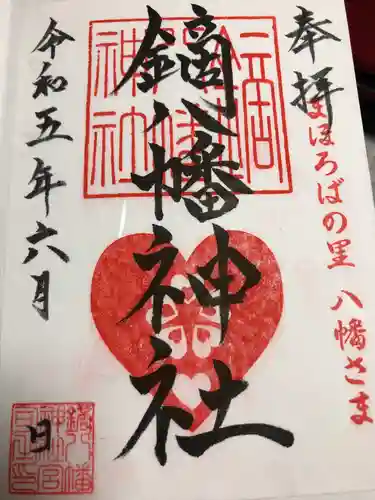 奉拝
まほろばの里 八幡さま
鏑八幡神社
令和五年六月
日